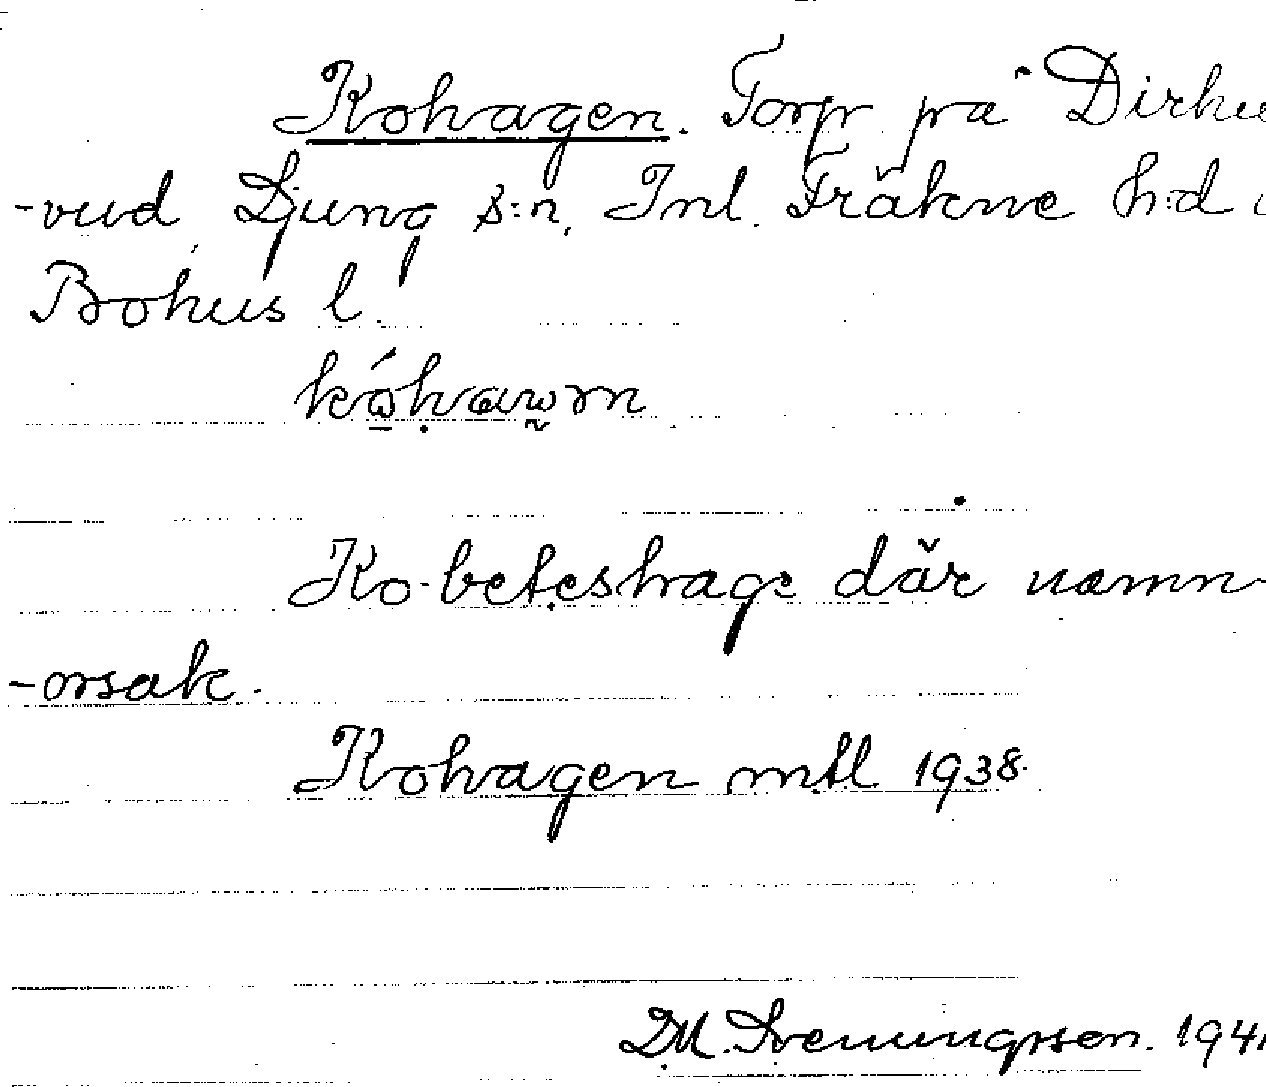 Kohagen. Torp på Dirhu
-vud, Ljung s:n, Inl. Fräkne h:d
Bohus l.
Ko-beteshage där namn-
-orsak.
Kohagen mtl 1938.
D.M. Sveningsson. 194